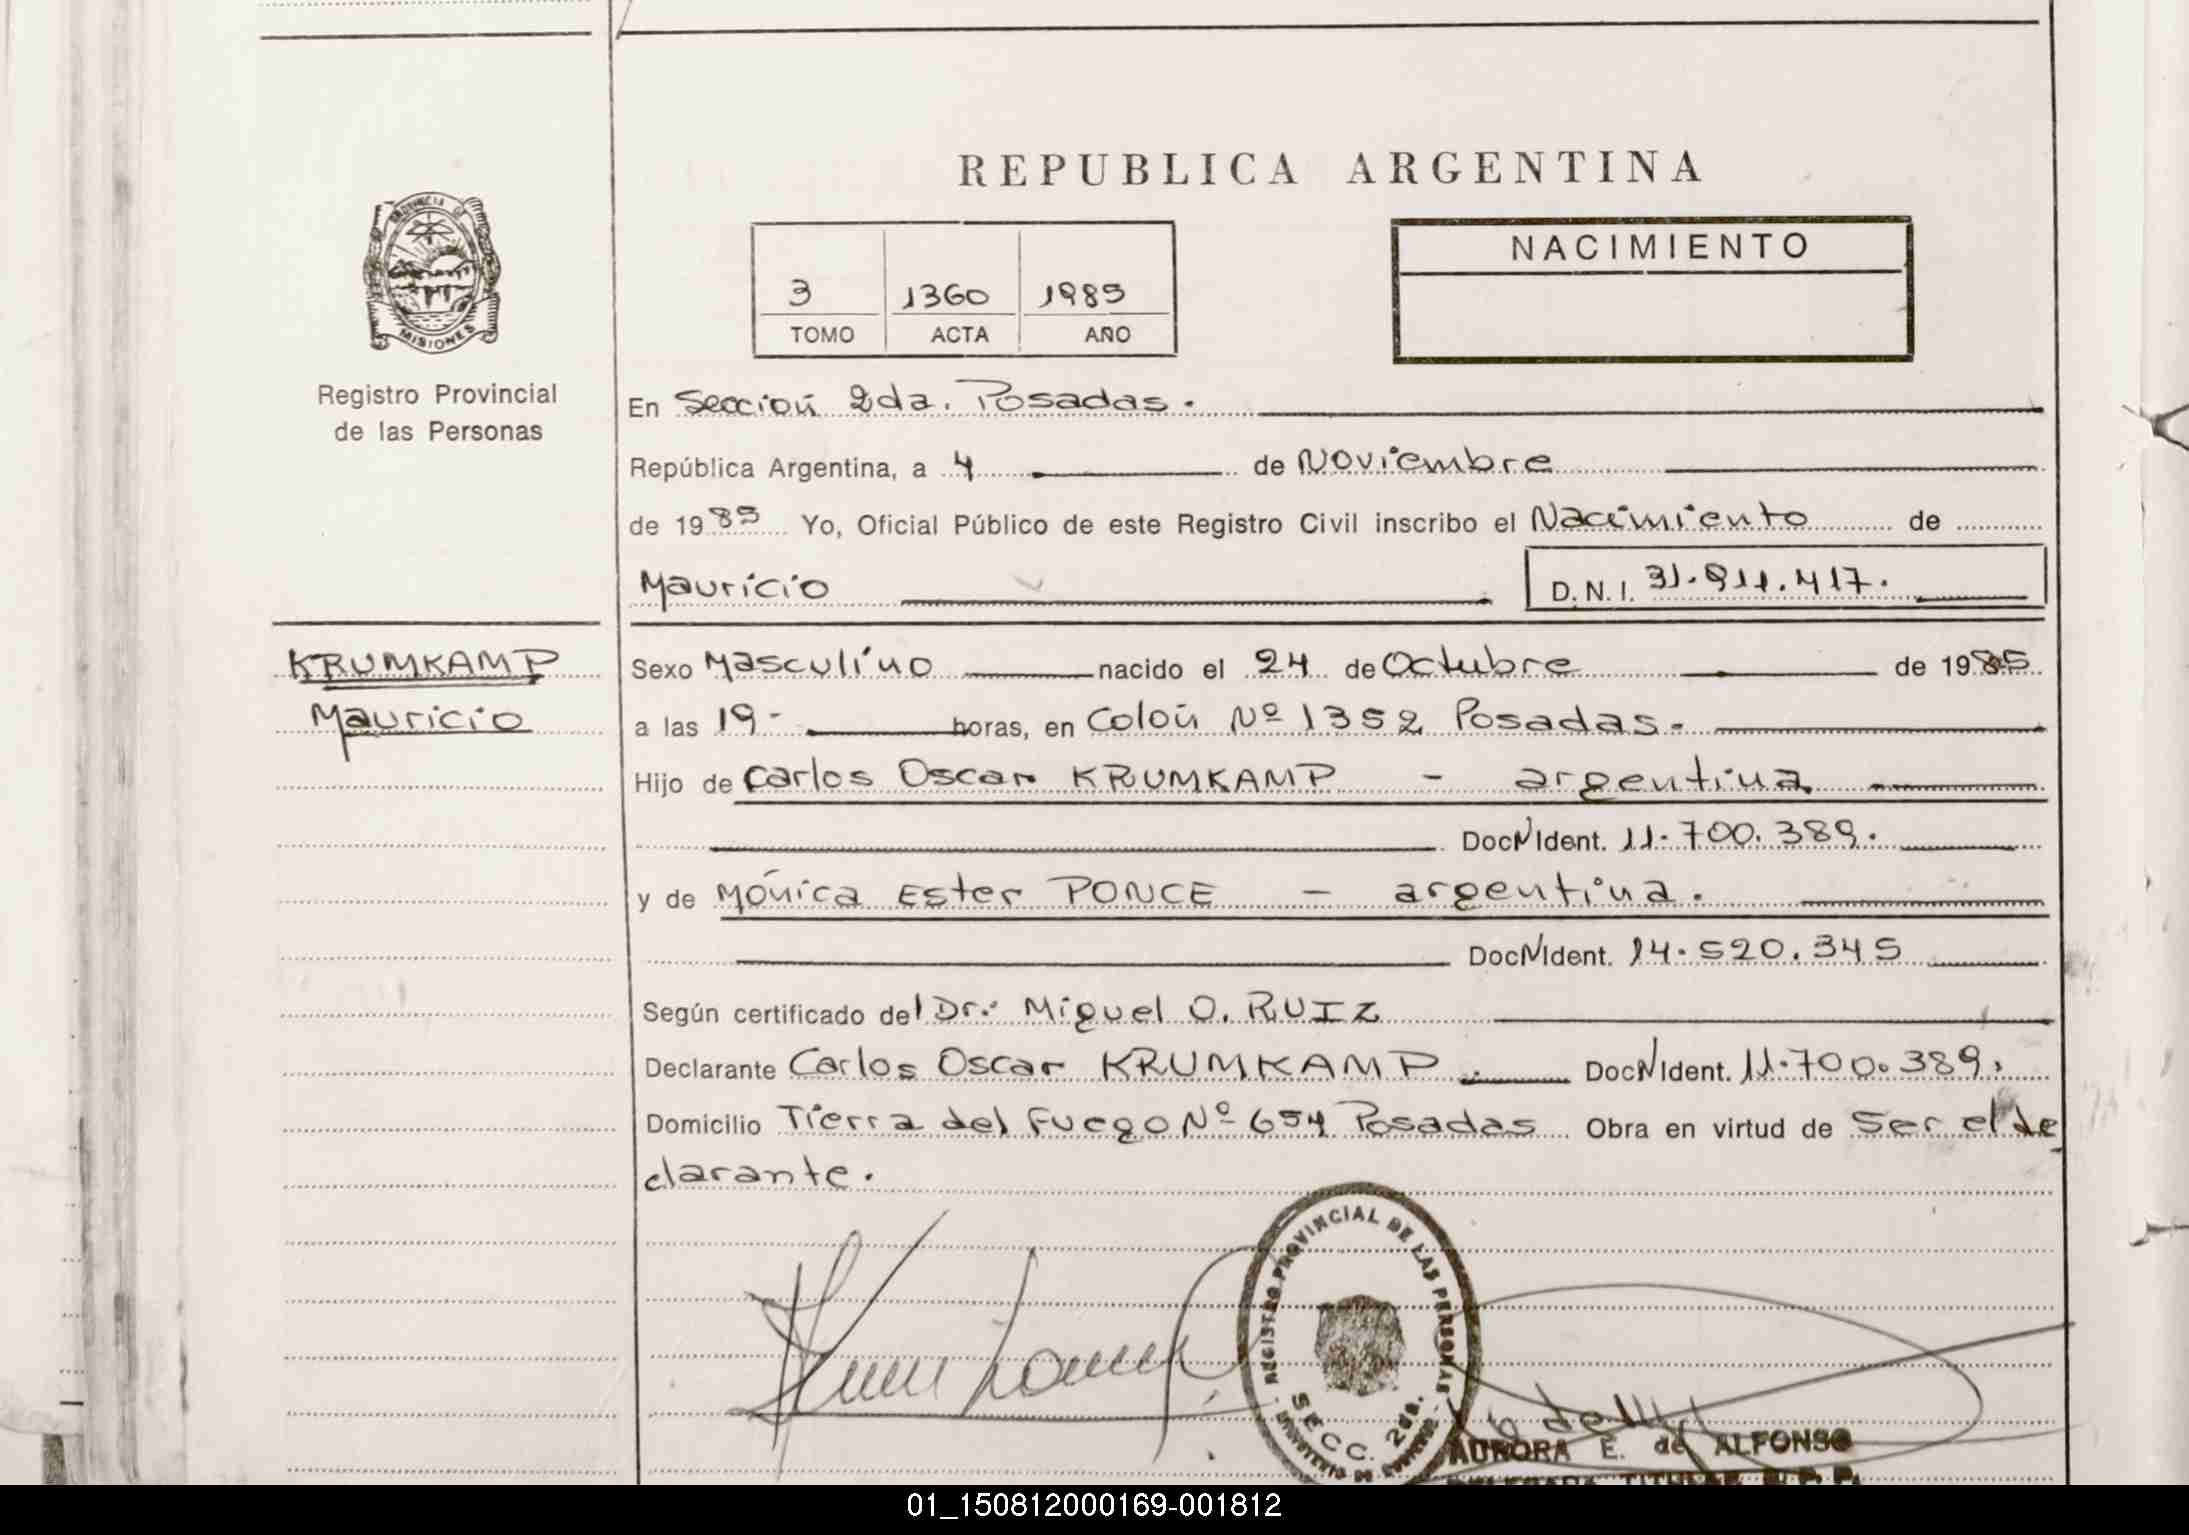 REPUBLICA ARGENTINA
PROVINCIA DE
MISIONES
Registro Provincial
de las Personas
3 1360 1985
TOMO ACTA AÑO
NACIMIENTO
En Sección 2da. Posadas.
República Argentina, a 4 de Noviembre
de 1985 Yo, Oficial Público de este Registro Civil inscribo el Nacimiento de
Mauricio D.N.I. 31.911.417.
KRUMKAMP
Mauricio
Sexo Masculino nacido el 24 de Octubre de 1985
a las 19- horas, en Colón Nº 1352 Posadas.
Hijo de Carlos Oscar KRUMKAMP - argentina
Doc N Ident. 11.700.389.
y de Mónica Ester PONCE - argentina.
Doc N Ident. 14.520.345
Según certificado del Dr. Miguel O. RUIZ
Declarante Carlos Oscar KRUMKAMP Doc N Ident. 11.700.389.
Domicilio Tierra del Fuego Nº 654 Posadas Obra en virtud de Ser el de
clarante.
REGISTRO PROVINCIAL DE LAS PERSONAS
SECC. 2da.
MINISTERIO DE GOBIERNO
AURORA E. de ALFONSO
DELEGADA TITULAR R.P.P.
01_150812000169-001812